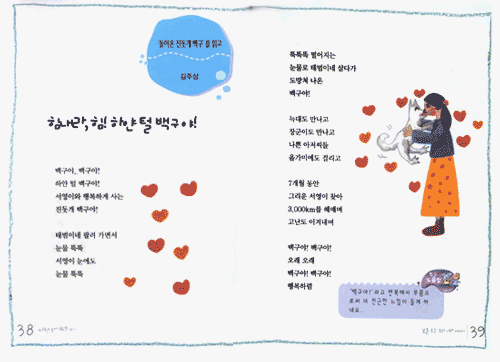 돌아온 진돗개 백구 를 읽고
김주상
힘내라, 힘! 하얀 털 백구야!
백구야, 백구야!
하얀 털 백구야!
서영이와 행복하게 사는
진돗개 백구야!
태범이네 팔려 가면서
눈물 뚝뚝
서영이 눈에도
눈물 뚝뚝
38
뚝뚝뚝 떨어지는
눈물로 태범이네 살다가
도망쳐 나온
백구야!
늑대도 만나고
장군이도 만나고
나쁜 아저씨들
올가미에도 걸리고
7개월 동안
그리운 서영이 찾아
3,000km를 헤매며
고난도 이겨내며
백구야! 백구야!
오래 오래
백구야! 백구야!
행복하렴
'백구야!' 라고 반복해서 부름으
로써 더 친근한 느낌이 들게 하
네요.
39